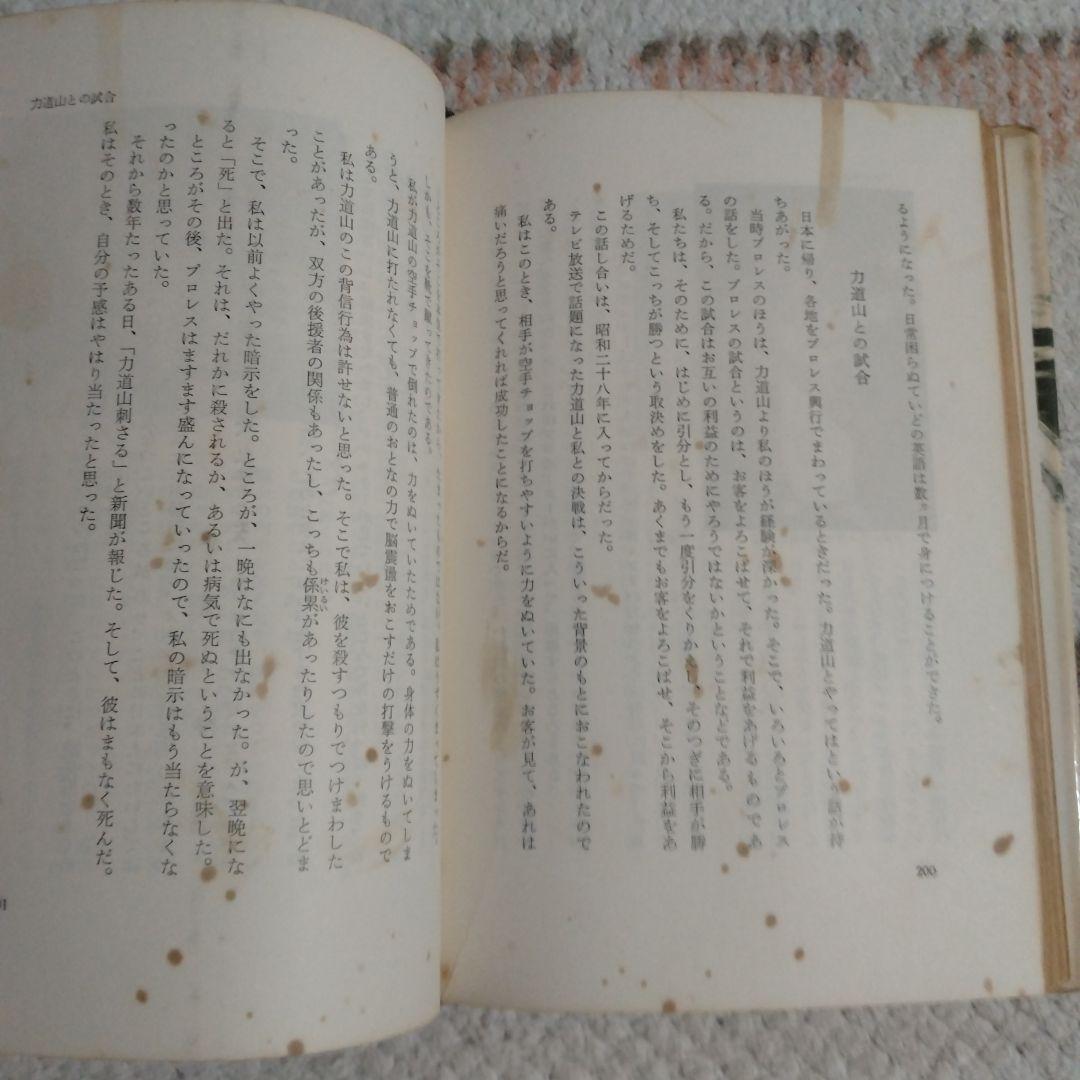 るようになった。日常困らぬていどの英語は数ヵ月で身につけることができた。
力道山との試合
日本に帰り、各地をプロレス興行でまわっているときだった。力道山とやってはという話が持
ちあがった。
当時プロレスのほうは、力道山より私のほうが経験が深かった。そこで、いろいろとプロレス
の話をした。プロレスの試合というのは、お客をよろこばせて、それで利益をあげるものであ
る。だから、この試合はお互いの利益のためにやろうではないかということなどである。
私たちは、そのために、はじめに引分とし、もう一度引分をくりかえし、そのつぎに相手が勝
ち、そしてこっちが勝つという取決めをした。あくまでもお客をよろこばせ、そこから利益をあ
げるためだ。
この話し合いは、昭和二十八年に入ってからだった。
テレビ放送で話題になった力道山と私との決戦は、こういった背景のもとにおこなわれたので
ある。
私はこのとき、相手が空手チョップを打ちやすいように力をぬいていた。お客が見て、あれは
痛いだろうと思ってくれれば成功したことになるからだ。
200
力道山との試合
しかも、そこを靴で蹴ってきたのである。
私が力道山の空手チョップで倒れたのは、力をぬいていたためである。身体の力をぬいてしま
うと、力道山に打たれなくても、普通のおとなの力で脳震盪をおこすだけの打撃をうけるもので
ある。
私は力道山のこの背信行為は許せないと思った。そこで私は、彼を殺すつもりでつけまわした
ことがあったが、双方の後援者の関係もあったし、こっちも係累があったりしたので思いとどま
けいるい
った。
そこで、私は以前よくやった暗示をした。ところが、一晩はなにも出なかった。が、翌晩にな
ると「死」と出た。それは、だれかに殺されるか、あるいは病気で死ぬということを意味した。
ところがその後、プロレスはますます盛んになっていったので、私の暗示はもう当たらなくな
ったのかと思っていた。
それから数年たったある日、「力道山刺さる」と新聞が報じた。そして、彼はまもなく死んだ。
私はそのとき、自分の予感はやはり当たったと思った。